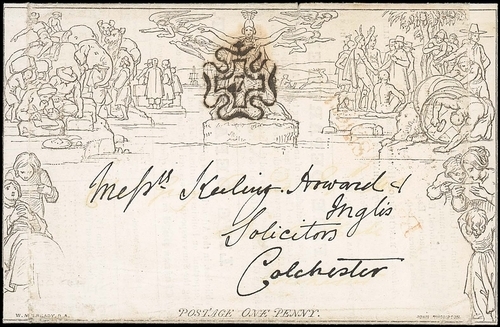 Mess.rs Keeling Howard &
Inglis
Solicitors
Colchester
W. MULREADY, R.A.
POSTAGE ONE PENNY.